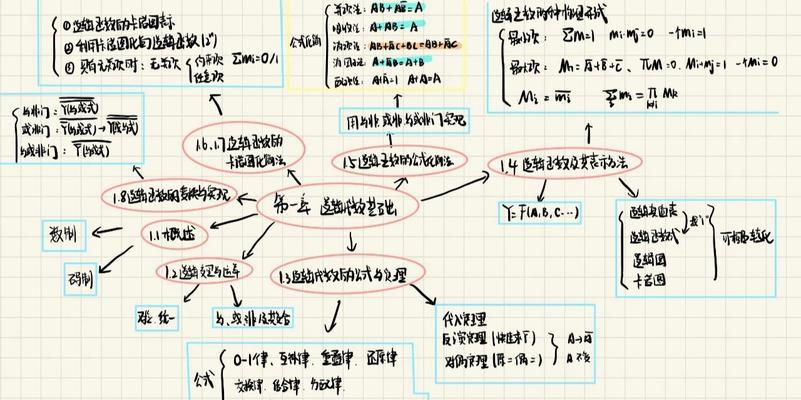 ① 逻辑函数的卡诺图表示
② 利用卡诺图化简逻辑函数
③ 具有无关项时：无关项 { 约束项 任意项 Σmi=0/1
公式化简
并项法：AB+AB̅=A
吸收法：A+AB=A
消项法：AB+A̅C+BC=AB+A̅C
消因子法：A+A̅B=A+B
配项法：A+A̅=1 A+A=A
逻辑函数的两种标准形式
最小项：Σm=1 mi·mj=0
最大项：ΠM=0 Mi+Mj=1
Mi=m̅i̅
与非门：
或非门：
与或非门：
1.6 1.7 逻辑函数的
卡诺图化简法
用与非 或非 与或非门实现
1.5 逻辑函数的公式化简法
1.4 逻辑函数及其表示方法
1.8 逻辑函数的变换与实现
第一章 逻辑代数基础
Y=F(A,B,C...)
数制
码制
1.1 概述
1.2 逻辑变量与运算
1.3 逻辑代数的公式与定理
逻辑真值表
逻辑函数式
逻辑图
卡诺图
可相互转化
与、或、非及其复合
代入定理
反演定理
对偶定理
A→A̅
A不变
公式
0-1律、互补律、重叠律、还原律
交换律、结合律、分配律